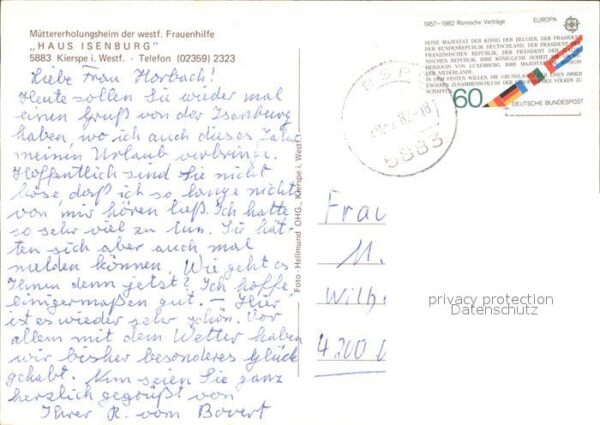 Müttererholungsheim der westf. Frauenhilfe
„HAUS ISENBURG"
5883 Kierspe i. Westf. · Telefon (02359) 2323
Liebe Frau Horbach!
Heute sollen Sie wieder mal
einen Gruß von der Isenburg
haben, wo ich auch dieses Jahr
meinen Urlaub verbringe.
Hoffentlich sind Sie nicht
böse, daß ich so lange nichts
von mir hören ließ. Ich hatte
so sehr viel zu tun. Sie hät-
ten sich aber auch mal
melden können. Wie geht es
Ihnen denn jetzt? Ich hoffe,
einigermaßen gut. – Hier
ist es wieder sehr schön. Vor
allem mit dem Wetter haben
wir bisher besonderes Glück
gehabt. Nun seien Sie ganz
herzlich gegrüßt von
Ihrer R. vom Bovert
Foto Hellmund OHG., Kierspe i. Westf.
1957–1982 Römische Verträge
EUROPA
SEINE MAJESTÄT DER KÖNIG DER BELGIER, DER PRÄSIDENT
DER BUNDESREPUBLIK DEUTSCHLAND, DER PRÄSIDENT DER
FRANZÖSISCHEN REPUBLIK, IHRE KÖNIGLICHE HOHEIT
HERZOGIN VON LUXEMBURG, IHRE MAJESTÄT
DER NIEDERLANDE.
IN DEM FESTEN WILLEN, DIE GRUNDLAGEN EINEN IMMER
ENGEREN ZUSAMMENSCHLUSS DER EUROPÄISCHEN VÖLKER ZU
60
DEUTSCHE BUNDESPOST
5883
Frau
M.
Wilh.
4200
privacy protection
Datenschutz